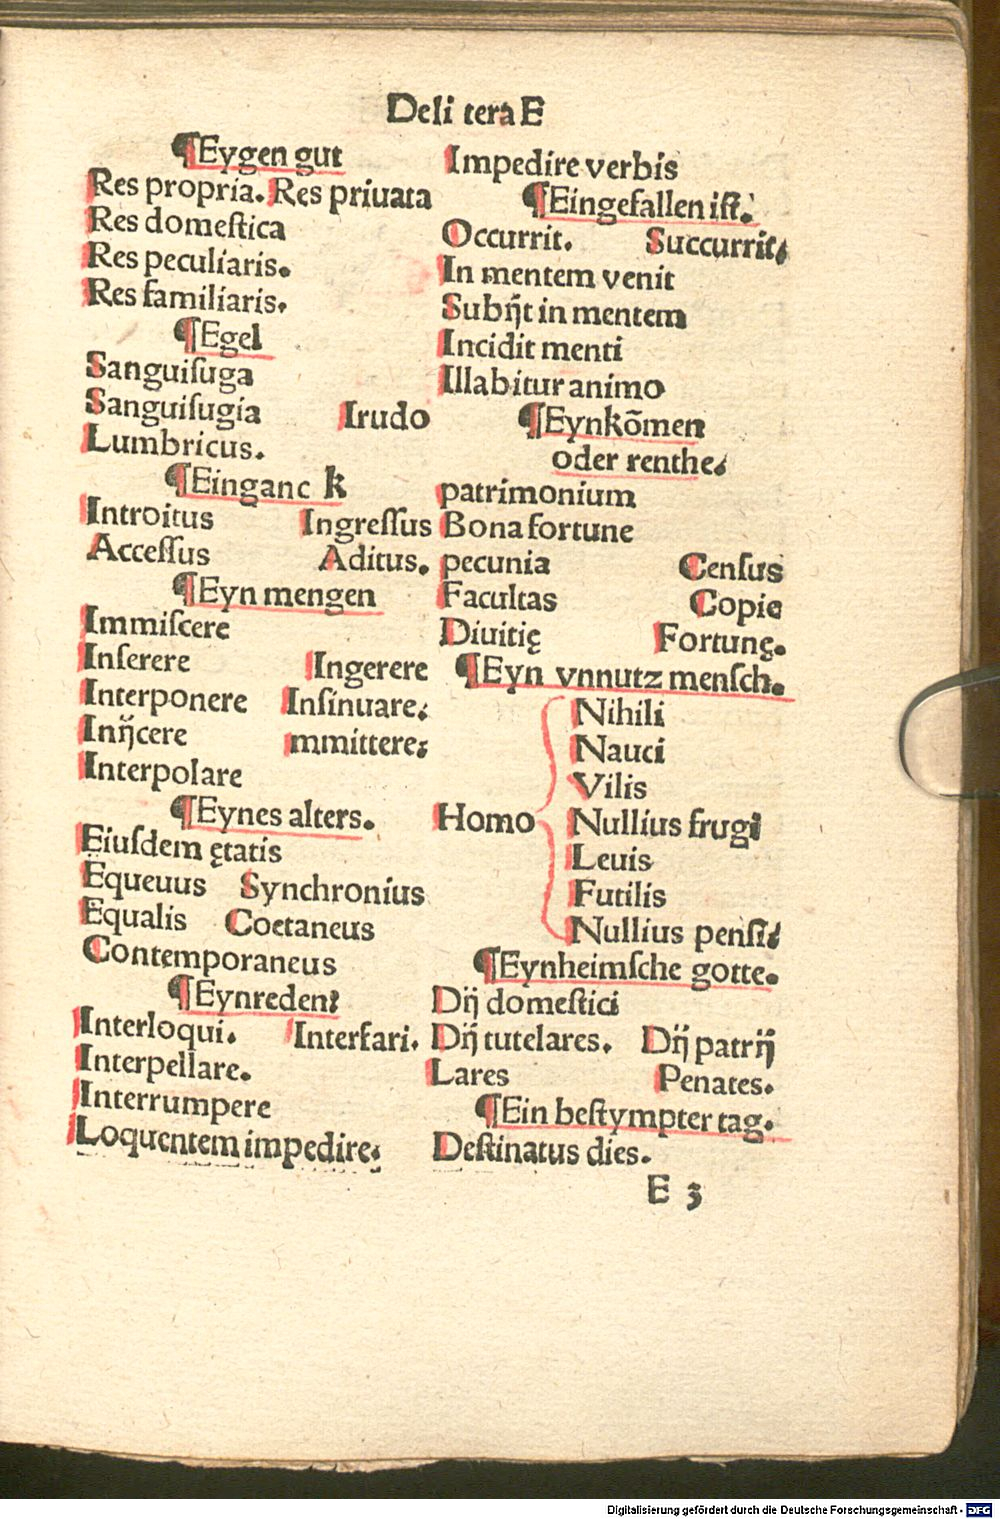 Deli tera E
¶Eygen gut
Res propria. Res priuata
Res domeſtica
Res peculiaris.
Res familiaris.
¶Egel
Sanguiſuga
Sanguiſugia Irudo
Lumbricus.
¶Einganc k
Introitus Ingreſſus
Acceſſus Aditus.
¶Eyn mengen
Immiſcere
Inſerere Ingerere
Interponere Inſinuare.
Inijcere mmittere.
Interpolare
¶Eynes alters.
Eiuſdem ętatis
Equeuus Synchronius
Equalis Coetaneus
Contemporaneus
¶Eynreden
Interloqui. Interfari.
Interpellare.
Interrumpere
Loquentem impedire.
Impedire verbis
¶Eingefallen iſt.
Occurrit. Succurrit.
In mentem venit
Subijt in mentem
Incidit menti
Illabitur animo
¶Eynkõmen
oder renthe.
patrimonium
Bona fortune
pecunia Cenſus
Facultas Copie
Diuitię Fortunę.
¶Eyn vnnutz menſch.
Nihili
Nauci
Vilis
Homo Nullius frugi
Leuis
Futilis
Nullius penſi.
¶Eynheimſche gotte.
Dij domeſtici
Dij tutelares. Dij patrij
Lares Penates.
¶Ein beſtympter tag.
Deſtinatus dies.
E 3
Digitalisierung gefördert durch die Deutsche Forschungsgemeinschaft - DFG